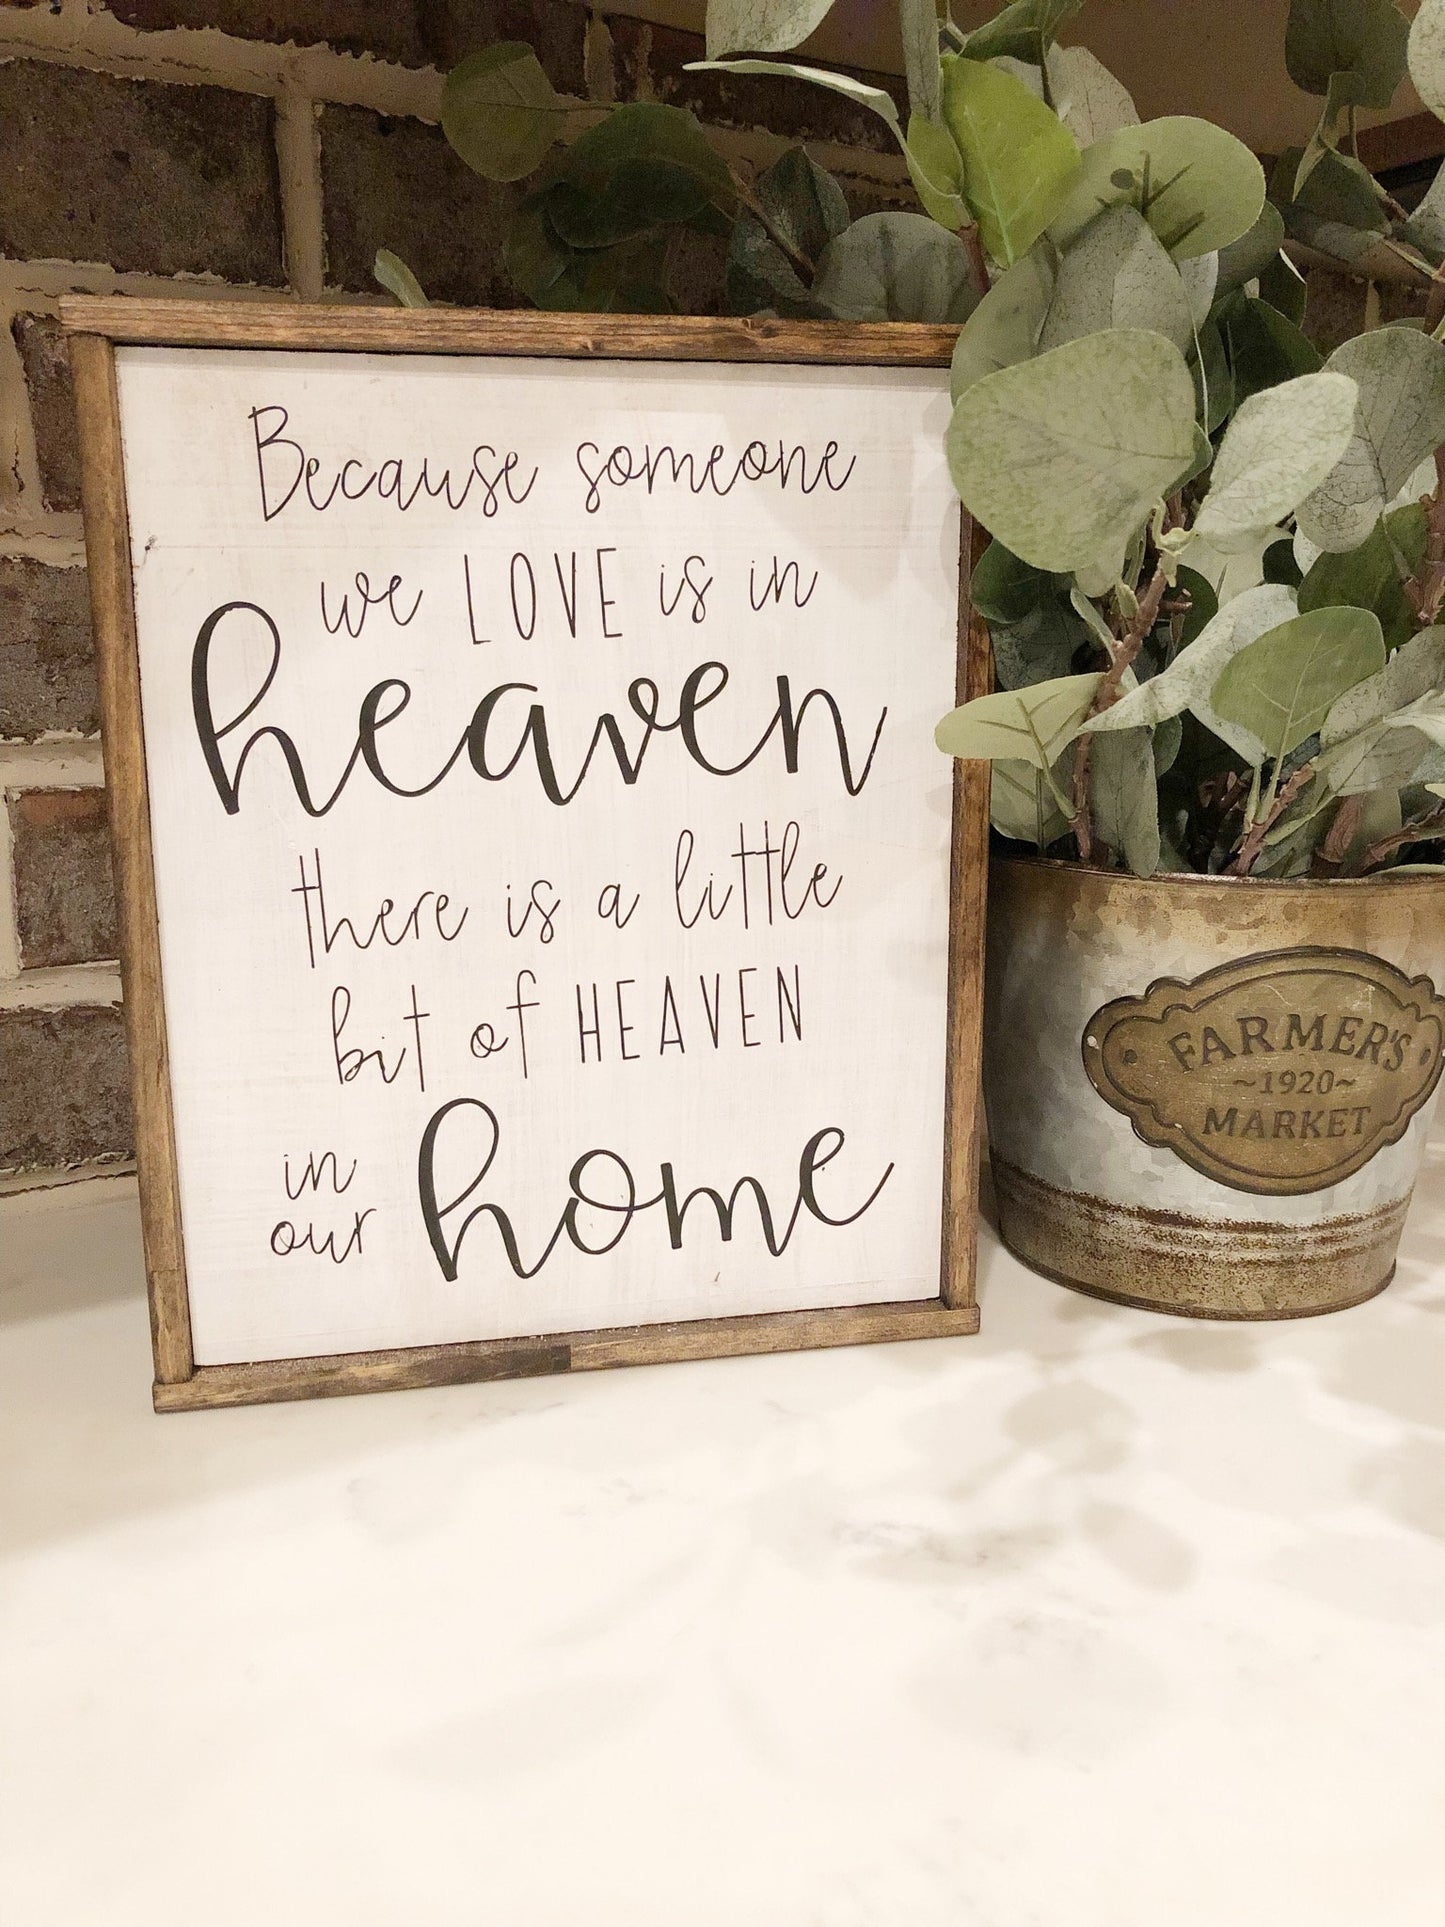 Because someone
we LOVE is in
heaven
there is a little
bit of HEAVEN
in
our home
FARMER'S
~1920~
MARKET